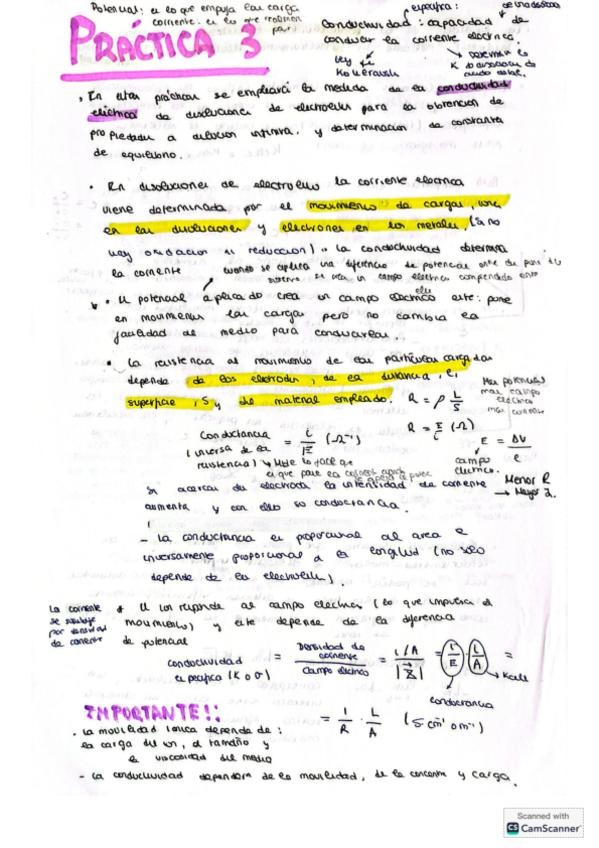 Potencial: es lo que empuja las cargas
corriente: es lo que realmente pasa
PRÁCTICA 3
específica:
Conductividad: capacidad de
conducir la corriente eléctrica.
Ley de
Kohlrausch
Determinar la
K disociación de
ácido débil.
• En estas prácticas se empleará la medida de la conductividad
eléctrica de disoluciones de electrolitos para la obtención de
propiedades a dilución infinita y determinación de constantes
de equilibrio.
• En disoluciones de electrolitos la corriente eléctrica
viene determinada por el movimiento de cargas, iones
en las disoluciones y electrones en los metales, (si no
hay oxidación ni reducción). La conductividad determina
la corriente
cuando se aplica una diferencia de potencial entre dos puntos del
sistema se crea un campo eléctrico comprendido entre
ellos
• El potencial aplicado crea un campo eléctrico este: pone
en movimiento las cargas pero no cambia la
facilidad de medio para conducirlas.
• La resistencia al movimiento de las partículas cargadas
depende de los electrodos, de la distancia, l,
superficie, S y de material empleado. R = ρ L/S
Más potencial
más campo
eléctrico
más corriente
R = E/i (Ω)
Conductancia = i/|E| (Ω⁻¹)
(inversa de la
resistencia)
E = ΔV/e
campo
eléctrico.
Si acercas los electrodos la intensidad de corriente
aumenta y con ello su conductancia.
Menor R
→ Mayor I.
- La conductancia es proporcional al área e
inversamente proporcional a la longitud (no solo
depende de los electrolitos).
La corriente
se sustituye
por densidad
de corriente
* El ion responde al campo eléctrico (lo que impulsa el
movimiento) y este depende de la diferencia
de potencial
conductividad
específica (K o σ) = Densidad de corriente / Campo eléctrico = i/A / |E/L| = i/E · L/A =
→ Kcell
conductancia
= 1/R · L/A (S cm⁻¹ o m⁻¹)
IMPORTANTE!:
• La movilidad iónica depende de:
la carga del ion, el tamaño y
la viscosidad del medio
- La conductividad dependerá de la movilidad, de la concentr y carga.
Scanned with
CS CamScanner